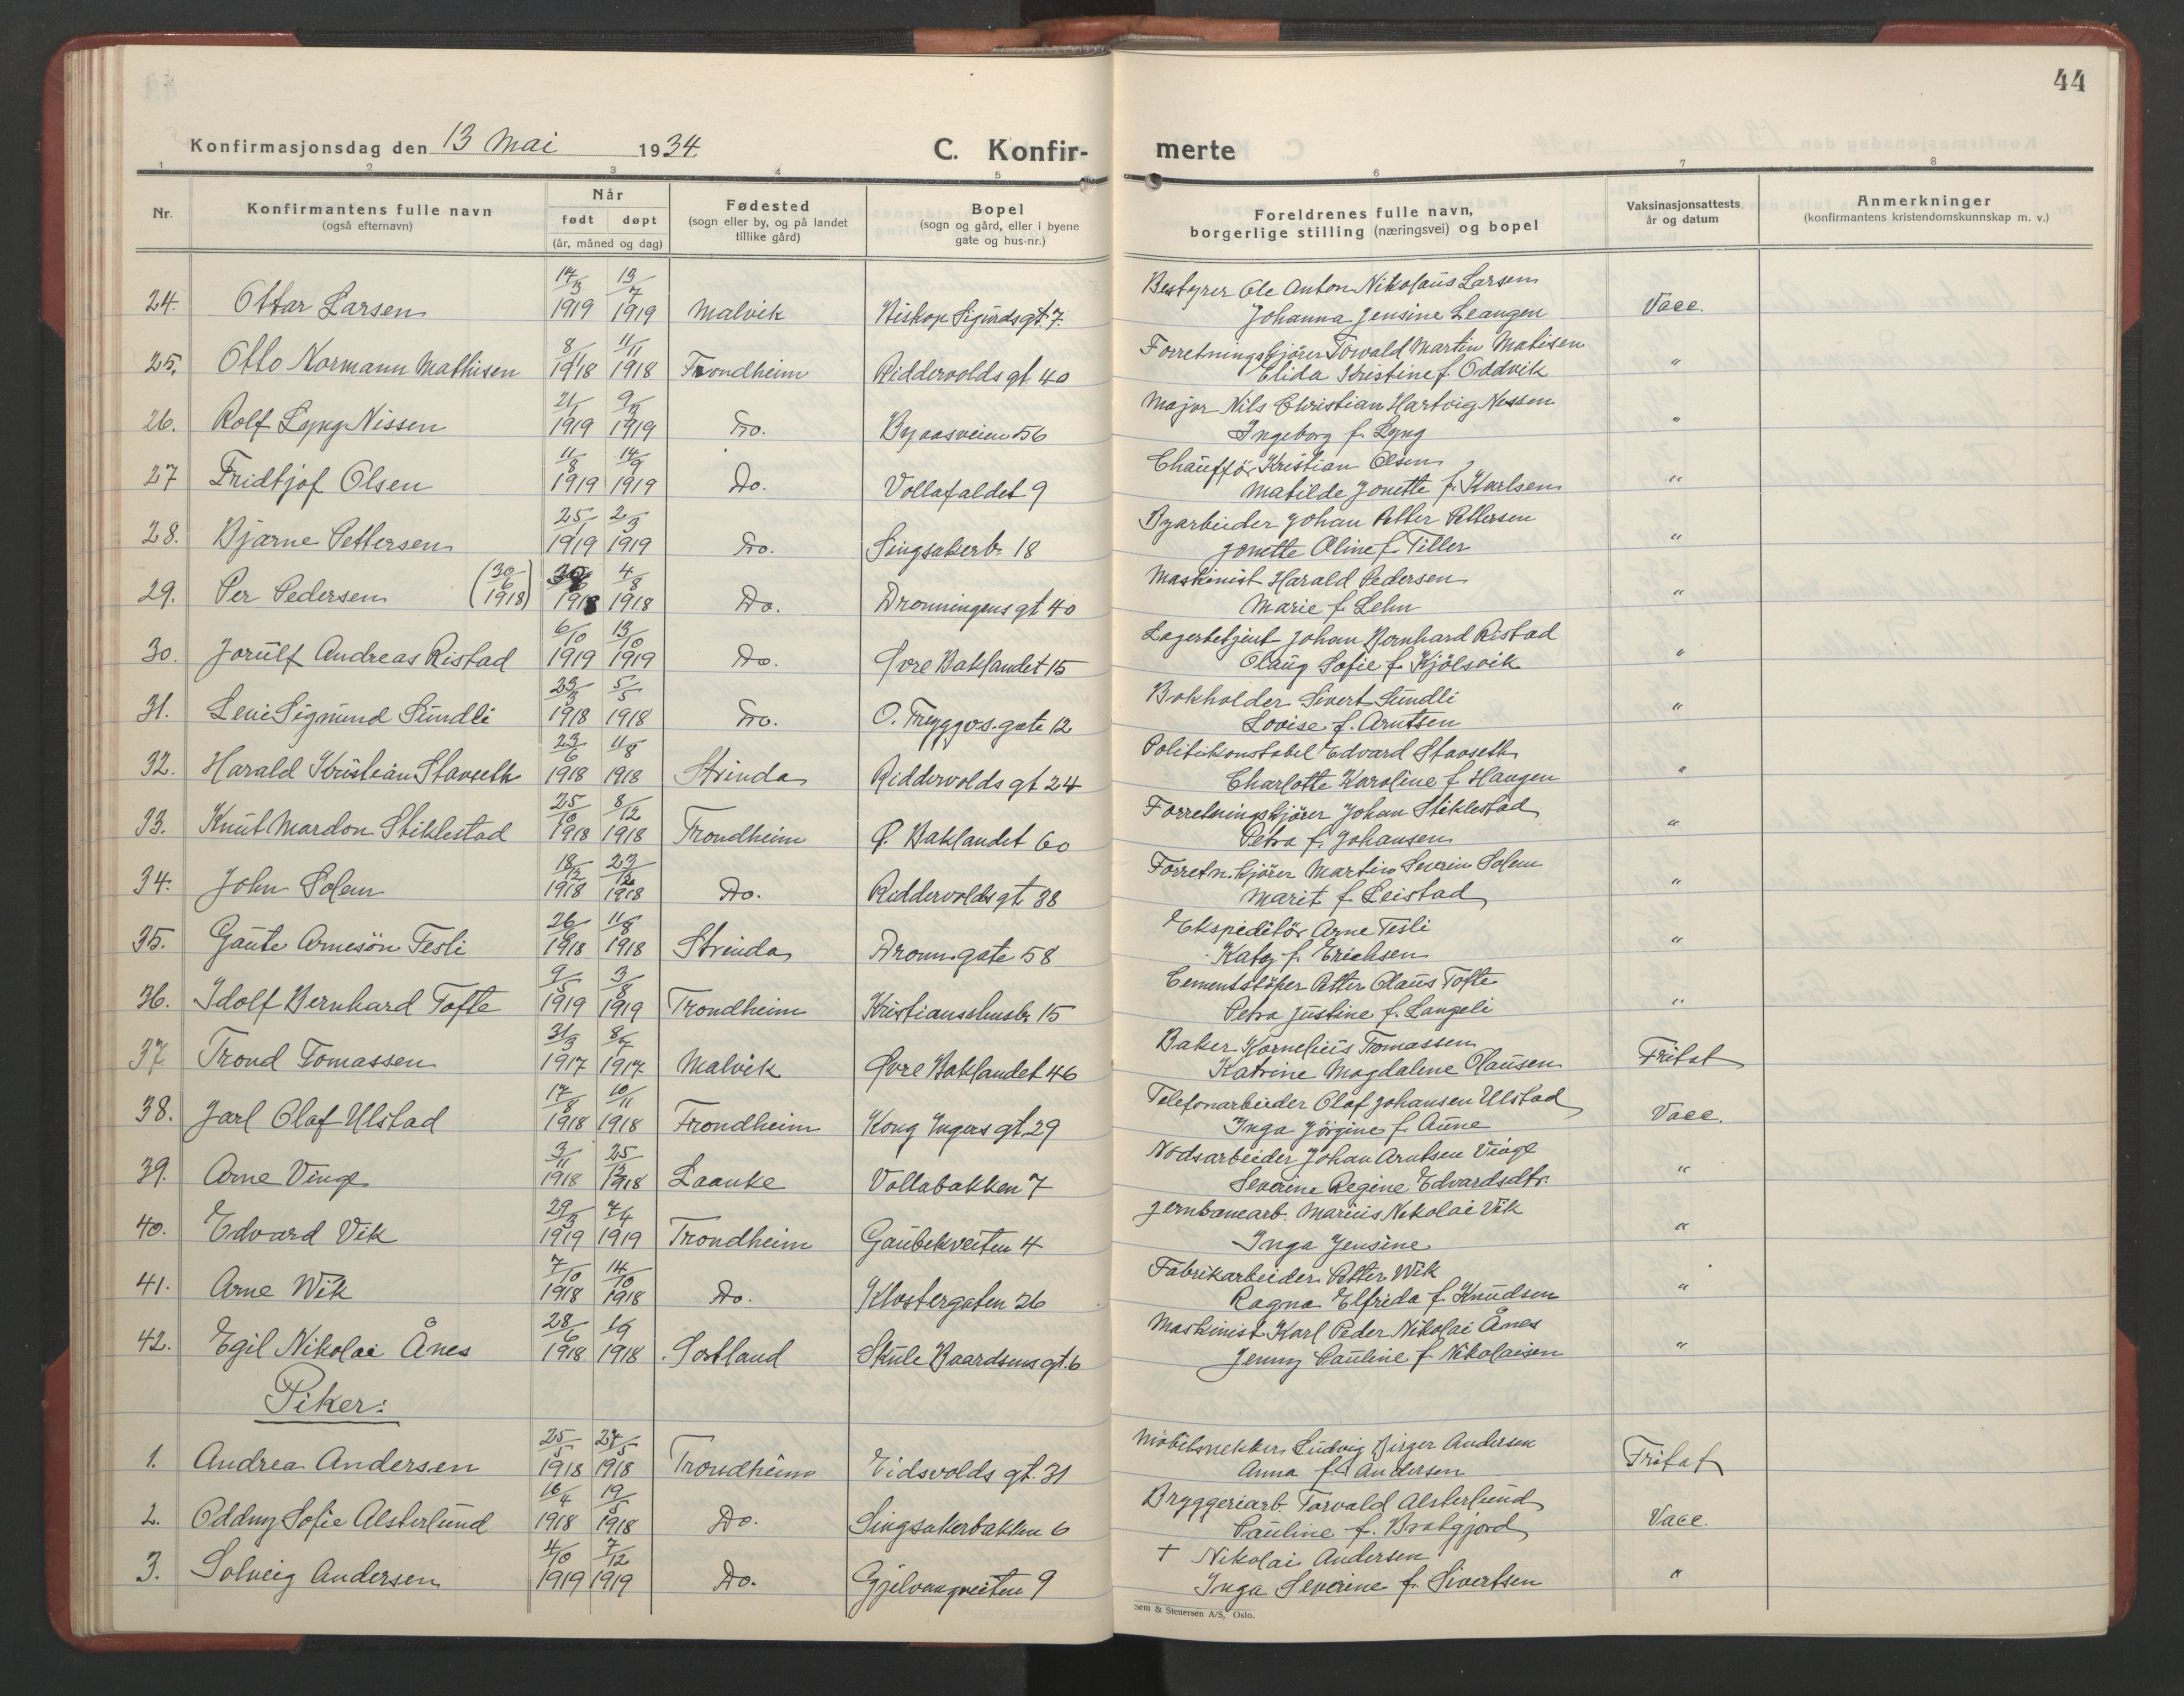 44
Konfirmasjonsdag den 13 Mai 1934. C. Konfir- merte
1 2 3 4 5 6 7 8
Nr. Konfirmantens fulle navn (også efternavn) Når født døpt (år, måned og dag) Fødested (sogn eller by, og på landet tillike gård) Bopel (sogn og gård, eller i byene gate og hus-nr.) Foreldrenes fulle navn, borgerlige stilling (næringsvei) og bopel Vaksinasjonsattests år og datum Anmerkninger (konfirmantens kristendomskunnskap m. v.)
24. Ottar Larsen 14/3 1919 13/7 1919 Malvik Biskop Sigurdsgt. 7. Bestyrer Ole Anton Nikolaus Larsen
Johanna Jensine Leangen Vacc.
25. Otto Normann Mathisen 8/11 1918 11/11 1918 Trondheim Riddervolds gt. 40 Forretningskjörer Torvald Martin Matisen
Elida Kristine f. Oddvik "
26. Rolf Lyng Nissen 21/1 1919 9/3 1919 Do. Byaasveien 56 Major Nils Christian Hartvig Nissen
Ingeborg f. Lyng "
27 Fridtjof Olsen 11/8 1919 14/9 1919 Do. Vollafaldet 9 Chaufför Kristian Olsen
Matilde Jonette f. Karlsen "
28. Bjarne Pettersen 25/1 1919 2/3 1919 Do. Singsakerb. 18 Byarbeider Johan Petter Pettersen
Jonette Oline f. Tiller "
29. Per Pedersen (30/6 1918) 30/6 1918 4/8 1918 Do. Dronningens gt 40 Maskinist Harald Pedersen
Marie f. Lehn "
30. Jorulf Andreas Ristad 6/10 1919 13/10 1919 Do. Øvre Baklandet 15 Lagerbetjent Johan Bernhard Ristad
Olaug Sofie f. Kjölsvik "
31. Levi Sigmund Sundli 23/3 1918 5/5 1918 Do. O. Tryggvs. gate 12 Bokholder Sivert Sundli
Lovise f. Arntsen "
32. Harald Kristian Stavseth 23/6 1918 11/8 1918 Strinda Riddervolds gt 24 Politikonstabel Edvard Stavseth
Charlotte Karoline f. Haugen "
33. Knut Mardon Stiklestad 25/10 1918 8/12 1918 Trondheim Ø. Baklandet 60 Forretningskjörer Johan Stiklestad
Petra f. Johansen "
34. John Solem 18/12 1918 23/12 1918 Do. Riddervolds gt 38 Forretn. kjörer Martin Severin Solem
Marit f. Leistad "
35. Gaute Arnesön Tesli 26/6 1918 11/8 1918 Strinda Dronn. gate 58 Ekspeditör Arne Tesli
Katy f. Erichsen "
36. Idolf Bernhard Tofte 9/5 1919 3/8 1919 Trondheim Kristiansstensb. 15 Cementstöper Petter Olaus Tofte
Petra Justine f. Langeli "
37. Trond Tomassen 31/3 1917 8/7 1917 Malvik Øvre Baklandet 46 Baker Kornelius Tomassen
Katrine Magdalene Olausen Fritat
38. Jarl Olaf Ulstad 17/8 1918 10/11 1918 Trondheim Kong Ingers gt. 29 Telefonarbeider Olaf Johansen Ulstad
Inga Jörgine f. Aune Vacc.
39. Arne Vinge 3/11 1918 25/12 1918 Laanke Vollabakken 7 Nodsarbeider Johan Arntsen Vinge
Severine Regine Edvardsdtr. "
40. Edvard Vik 29/3 1919 7/4 1919 Trondheim Gaubekveiten 4 Jernbanearb. Marius Nikolai Vik
Inga Jensine "
41. Arne Wik 7/10 1918 14/10 1918 Do. Klostergaten 26 Fabrikarbeider Petter Wik
Ragna Elfrida f. Knudsen "
42. Egil Nikolai Ånes 28/6 1918 1/9 1918 Sortland Skule Baardsens gt. 6 Maskinist Karl Peder Nikolai Ånes
Jenny Pauline f. Nikolaisen "
Piker:
1. Andrea Andersen 25/5 1918 27/5 1918 Trondheim Eidsvolds gt. 31 Möbelsnekker Ludvig Birger Andersen
Anna f. Andersen Fritat
2. Oddny Sofie Alsterlund 16/4 1918 19/5 1918 Do. Singsakerbakken 6 Bryggeriarb. Torvald Alsterlund
Pauline f. Bratgjord Vacc.
3. Solveig Andersen 4/10 1919 7/12 1919 Do. Gjelvangveiten 9 † Nikolai Andersen
Inga Severine f. Sivertsen "
Sem & Stenersen A/S, Oslo.